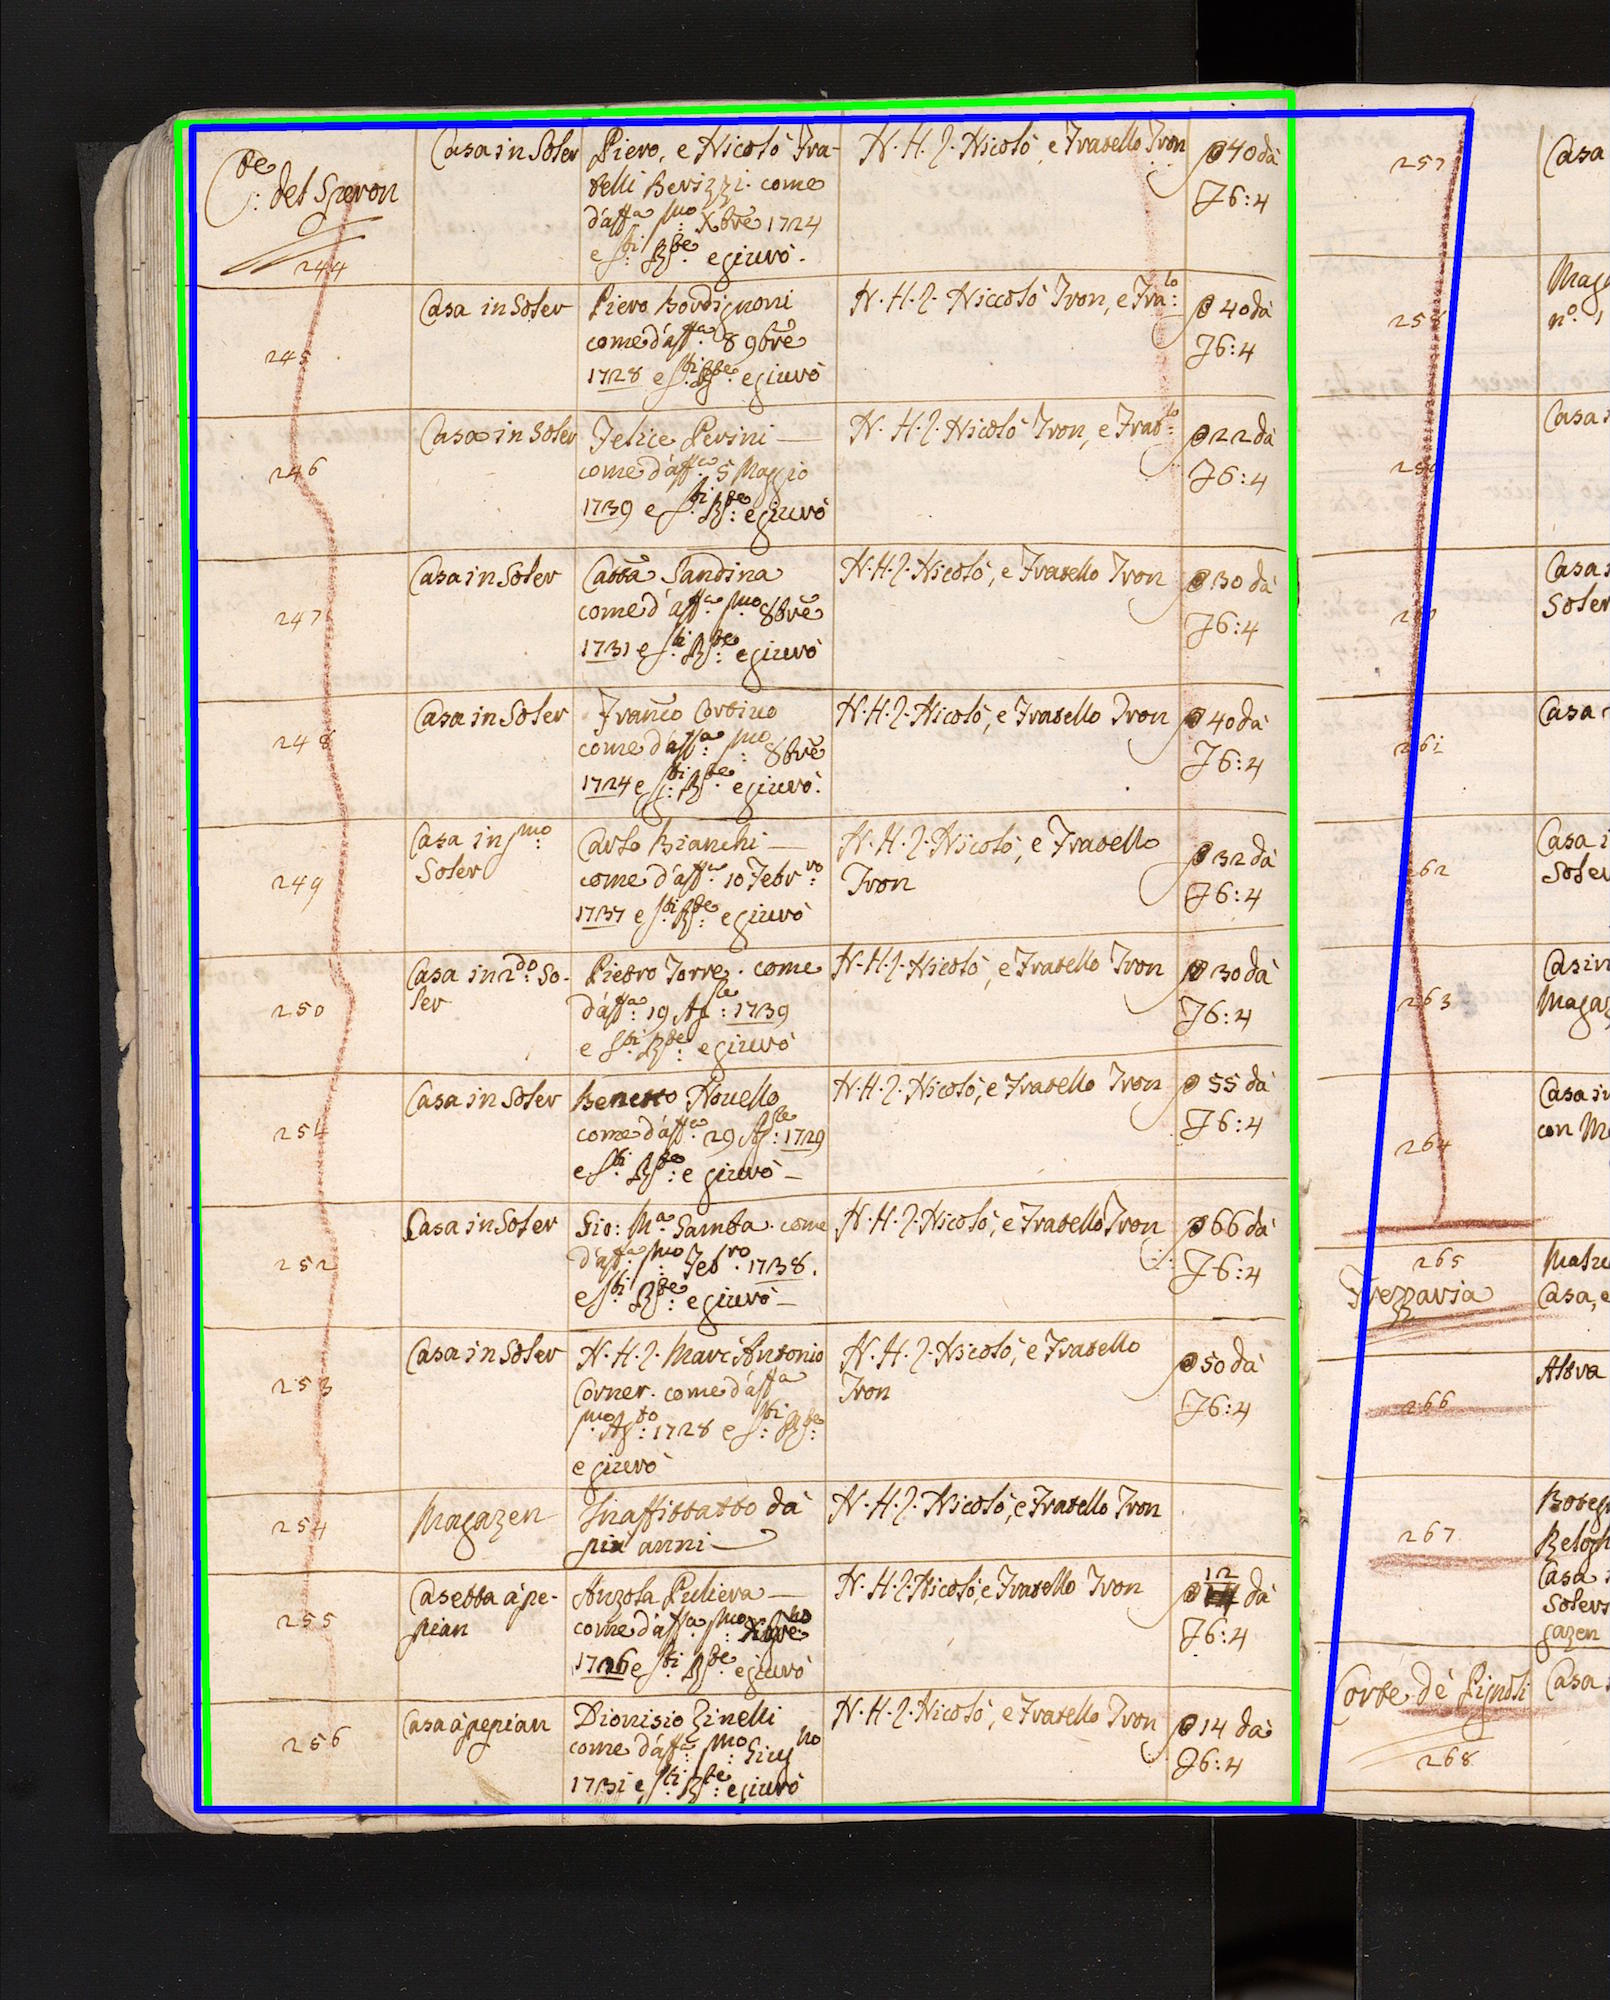 C.te del Speron
244
Casa in Soler
Piero, e Nicolò Fra-
telli Berizzi come
d'aff.a p.mo Xbrē 1724
e giurò.
N. H. Z. Nicolò, e Fratello Tron
40 dà
£6:4
245
Casa in Soler
Piero Bordignoni
come d'aff.a 8 9brē
1728 e giurò
N. H. Z. Niccolò Tron, e Fra.lo
40 dà
£6:4
246
Casa in Soler
Felice Perini
come d'aff.a 5 Maggio
1739 e giurò
N. H. Z. Nicolò Tron, e Frat.lo
22 dà
£6:4
247
Casa in Soler
Cattā Sandina
come d'aff.a p.mo 8brē
1731 e giurò
N. H. Z. Nicolò, e Fratello Tron
30 dà
£6:4
248
Casa in Soler
Franco Cortivo
come d'aff.a p.mo 8brē
1724 e giurò.
N. H. Z. Nicolò, e Fratello Tron
40 dà
£6:4
249
Casa in p.mo
Soler
Carlo Bianchi
come d'aff.a 10 Febr.ro
1737 e giurò
N. H. Z. Nicolò, e Fratello
Tron
32 dà
£6:4
250
Casa in 2.do So-
ler
Pietro Torre. come
d'aff.a 19 Ap.le 1739
e giurò
N. H. Z. Nicolò, e Fratello Tron
30 dà
£6:4
251
Casa in Soler
Benetto Novello
come d'aff.a 29 Ap.le 1729
e giurò
N. H. Z. Nicolò, e Fratello Tron
55 dà
£6:4
252
Casa in Soler
Gio: M.a Samba. come
d'aff.a p.mo Feb.ro 1738.
e giurò
N. H. Z. Nicolò, e Fratello Tron
66 dà
£6:4
253
Casa in Soler
N. H. Z. Marc'Antonio
Corner. come d'aff.a
p.mo Ag.to 1728 e
e giurò
N. H. Z. Nicolò, e Fratello
Tron
50 dà
£6:4
254
Magazen
Inaffittatto dà
più anni
N. H. Z. Nicolò, e Fratello Tron
255
Casetta à pe-
pian
Anzola Puliera
come d'aff.a p.mo
1726 e giurò
N. H. Z. Nicolò, e Fratello Tron
12
dà
£6:4
256
Casa à pepian
Dionisio Zinelli
come d'aff.a p.mo Giug.no
1731 e giurò
N. H. Z. Nicolò, e Fratello Tron
14 dà
£6:4
257
Casa
258
Maga
n.o
259
Casa
260
Casa
Soler
261
Casa
262
Casa i
Soler
263
Casin
Magaz
264
Casa in
con Ma
265
Frezzaria
Casa, e
266
Altra
267
Boteg
Casa
Solers
gazen
Corte dè Pignoli
268
Casa